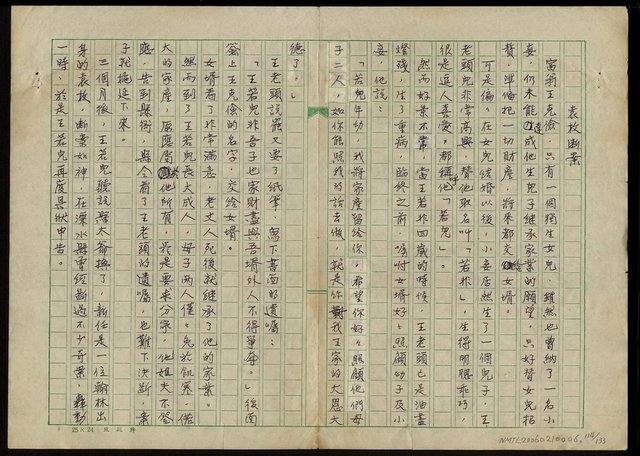 袁枚斷案
富翁王克儉，只有一個獨生女兒，雖然也曾納了一名小
妾，仍未能達成他生兒子繼承家業的願望，只好替女兒招
贅，準備把一切財產，將來都交給女婿。
可是偏偏在女兒結婚以後，小妾居然生了一個兒子，王
老頭兒非常高興，替他取名叫「若非」，生得明聰乖巧，
很是逗人喜愛，都稱他「若兒」。
然而好景不常，當王若非四歲的時候，王老頭已是油盡
燈殘，生了重病，臨終之前，囑咐女婿好好照顧幼子及小
妾，他說：
「若兒年幼，我將家產留給你，希望你好好照顧他們母
子二人，如你能照我的話去做，就是你對我王家的大恩大
德了。」
王老頭說罷又要了紙筆，寫下書面的遺囑：
「王若兒非吾子也家財盡與吾婿外人不得爭奪。」後面
簽上王克儉的名字，交給女婿。
女婿看了非常滿意，老丈人死後就繼承了他的家業。
然而到了王若兒長大成人，母子兩人僅免於飢寒，偌
大的家產，原應當他所有，於是要求分家，他姐夫不答
應，告到縣衙，縣令看了王老頭的遺囑，也難下決斷，案
子就拖延下來。
三個月後，王若兒聽說縣太爺換了，新任是一位翰林出
身的袁枚，斷案如神，在溧水縣曾經斷過不少奇案，轟動
一時，於是王若兒再度具狀申告。
25×24
NMTL20060210006